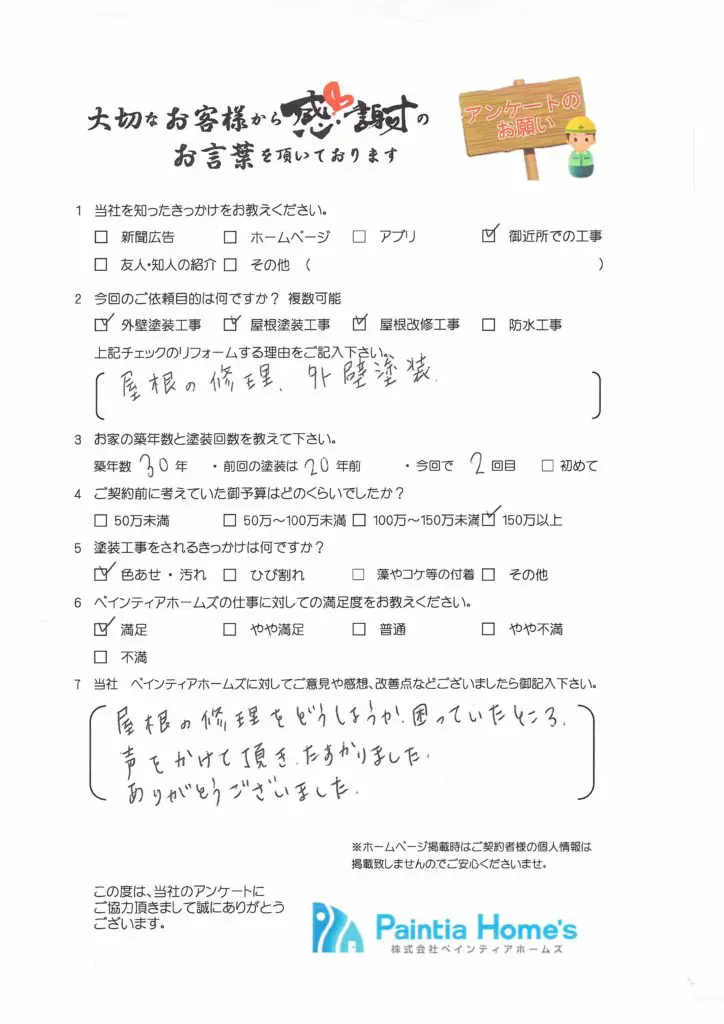 大切なお客様から感謝の
お言葉を頂いております
アンケートの
お願い
1 当社を知ったきっかけをお教えください。
□ 新聞広告 □ ホームページ □ アプリ ☑ 御近所での工事
□ 友人・知人の紹介 □ その他 ( )
2 今回のご依頼目的は何ですか? 複数可能
☑ 外壁塗装工事 ☑ 屋根塗装工事 ☑ 屋根改修工事 □ 防水工事
上記チェックのリフォームする理由をご記入下さい。
屋根の修理、外壁塗装.
3 お家の築年数と塗装回数を教えて下さい。
築年数 30 年 ・前回の塗装は 20 年前 ・今回で 2 回目 □ 初めて
4 ご契約前に考えていた御予算はどのくらいでしたか?
□ 50万未満 □ 50万~100万未満 □ 100万~150万未満 ☑ 150万以上
5 塗装工事をされるきっかけは何ですか?
☑ 色あせ・汚れ □ ひび割れ □ 藻やコケ等の付着 □ その他
6 ペインティアホームズの仕事に対しての満足度をお教えください。
☑ 満足 □ やや満足 □ 普通 □ やや不満
□ 不満
7 当社 ペインティアホームズに対してご意見や感想、改善点などございましたら御記入下さい。
屋根の修理をどうしようか、困っていたところ、
声をかけて頂き、たすかりました.
ありがとうございました.
※ホームページ掲載時はご契約者様の個人情報は
掲載致しませんのでご安心くださいませ。
この度は、当社のアンケートに
ご協力頂きまして誠にありがとう
ございます。
Paintia Home's
株式会社ペインティアホームズ